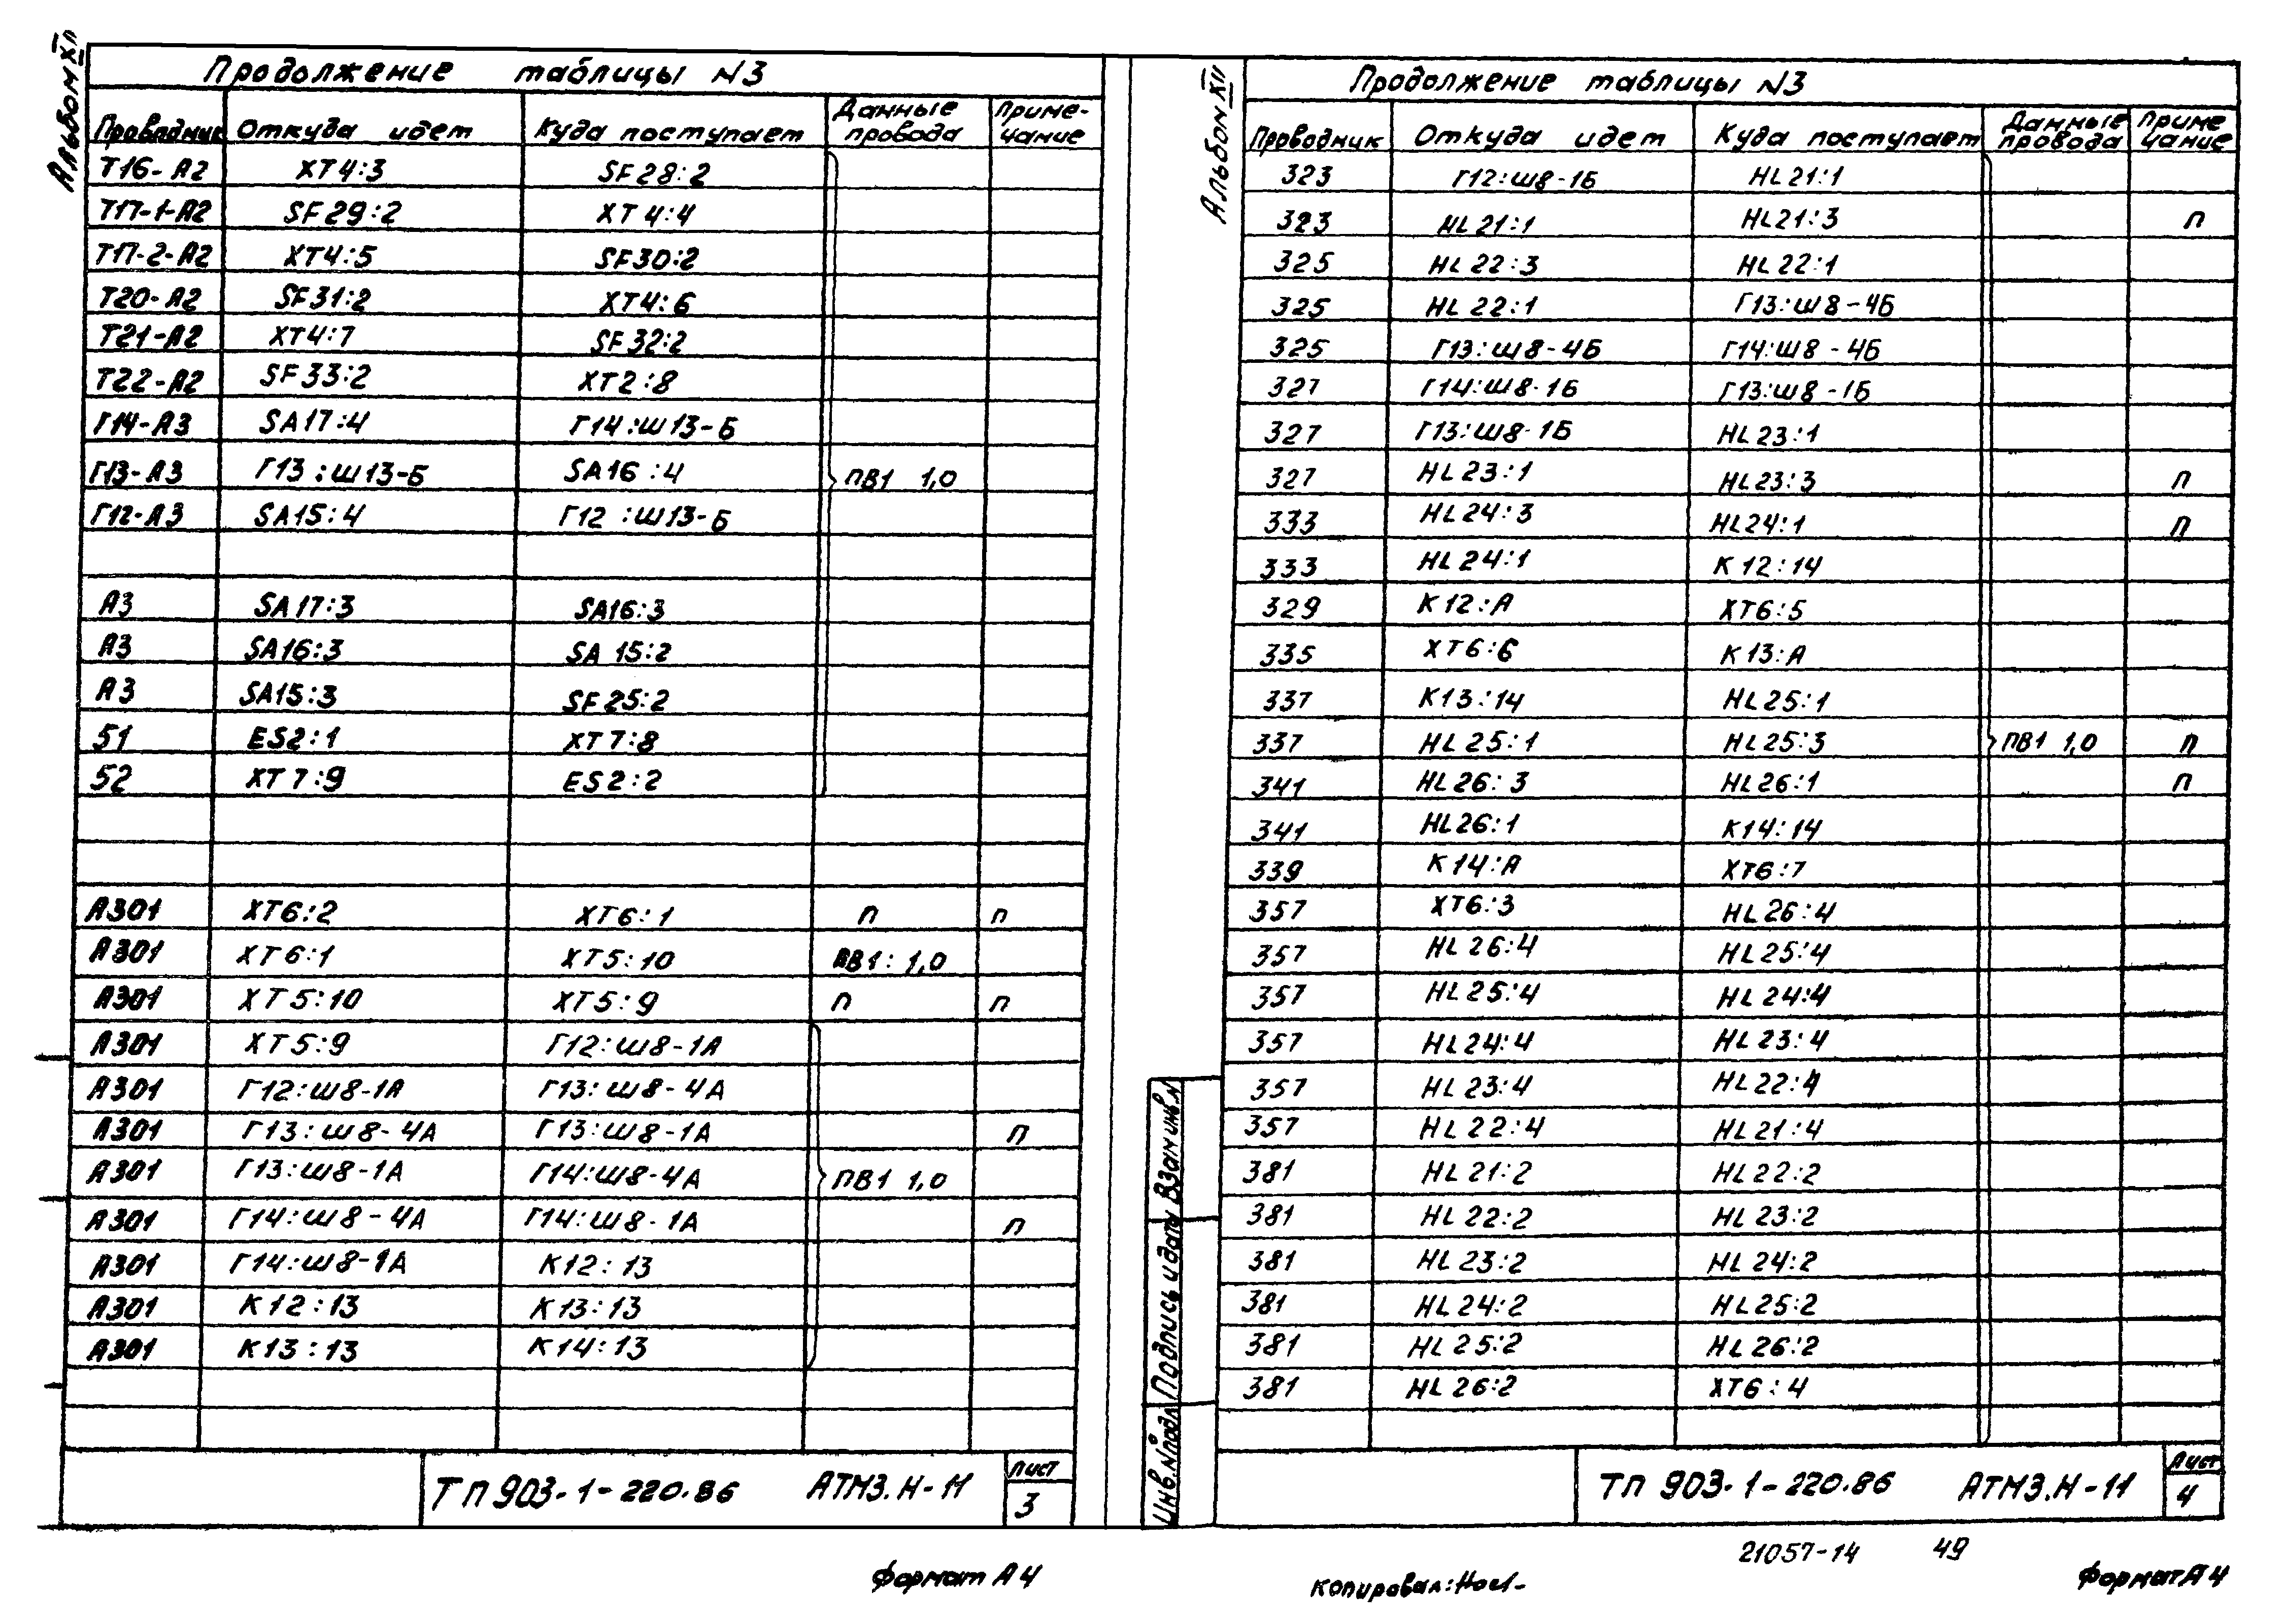 Альбом XII
Продолжение таблицы N3
Проводник Откуда идет Куда поступает Данные провода Приме-чание
Т16-А2 ХТ4:3 SF28:2
Т17-1-А2 SF29:2 ХТ4:4
Т17-2-А2 ХТ4:5 SF30:2
Т20-А2 SF31:2 ХТ4:6
Т21-А2 ХТ4:7 SF32:2
Т22-А2 SF33:2 ХТ2:8
Г14-А3 SA17:4 Г14:Ш13-Б
Г13-А3 Г13:Ш13-Б SA16:4 ПВ1 1,0
Г12-А3 SA15:4 Г12:Ш13-Б
А3 SA17:3 SA16:3
А3 SA16:3 SA15:2
А3 SA15:3 SF25:2
51 ES2:1 ХТ7:8
52 ХТ7:9 ES2:2
А301 ХТ6:2 ХТ6:1 п п
А301 ХТ6:1 ХТ5:10 ПВ1: 1,0
А301 ХТ5:10 ХТ5:9 п п
А301 ХТ5:9 Г12:Ш8-1А
А301 Г12:Ш8-1А Г13:Ш8-4А
А301 Г13:Ш8-4А Г13:Ш8-1А п
А301 Г13:Ш8-1А Г14:Ш8-4А ПВ1 1,0
А301 Г14:Ш8-4А Г14:Ш8-1А п
А301 Г14:Ш8-1А К12:13
А301 К12:13 К13:13
А301 К13:13 К14:13
ТП 903-1-220.86 АТМ3.Н-11 Лист 3
Формат А4
Альбом XII
Продолжение таблицы N3
Проводник Откуда идет Куда поступает Данные провода Приме чание
323 Г12:Ш8-1Б HL21:1
323 HL21:1 HL21:3 п
325 HL22:3 HL22:1
325 HL22:1 Г13:Ш8-4Б
325 Г13:Ш8-4Б Г14:Ш8-4Б
327 Г14:Ш8-1Б Г13:Ш8-1Б
327 Г13:Ш8-1Б HL23:1
327 HL23:1 HL23:3 п
333 HL24:3 HL24:1 п
333 HL24:1 К12:14
329 К12:А ХТ6:5
335 ХТ6:6 К13:А
337 К13:14 HL25:1
337 HL25:1 HL25:3 ПВ1 1,0 п
341 HL26:3 HL26:1 п
341 HL26:1 К14:14
339 К14:А ХТ6:7
357 ХТ6:3 HL26:4
357 HL26:4 HL25:4
357 HL25:4 HL24:4
357 HL24:4 HL23:4
357 HL23:4 HL22:4
357 HL22:4 HL21:4
381 HL21:2 HL22:2
381 HL22:2 HL23:2
381 HL23:2 HL24:2
381 HL24:2 HL25:2
381 HL25:2 HL26:2
381 HL26:2 ХТ6:4
Инв.№подл Подпись и дата Взам инв.N
ТП 903-1-220.86 АТМ3.Н-11 Лист 4
21057-14 49
Копировал:
Формат А4